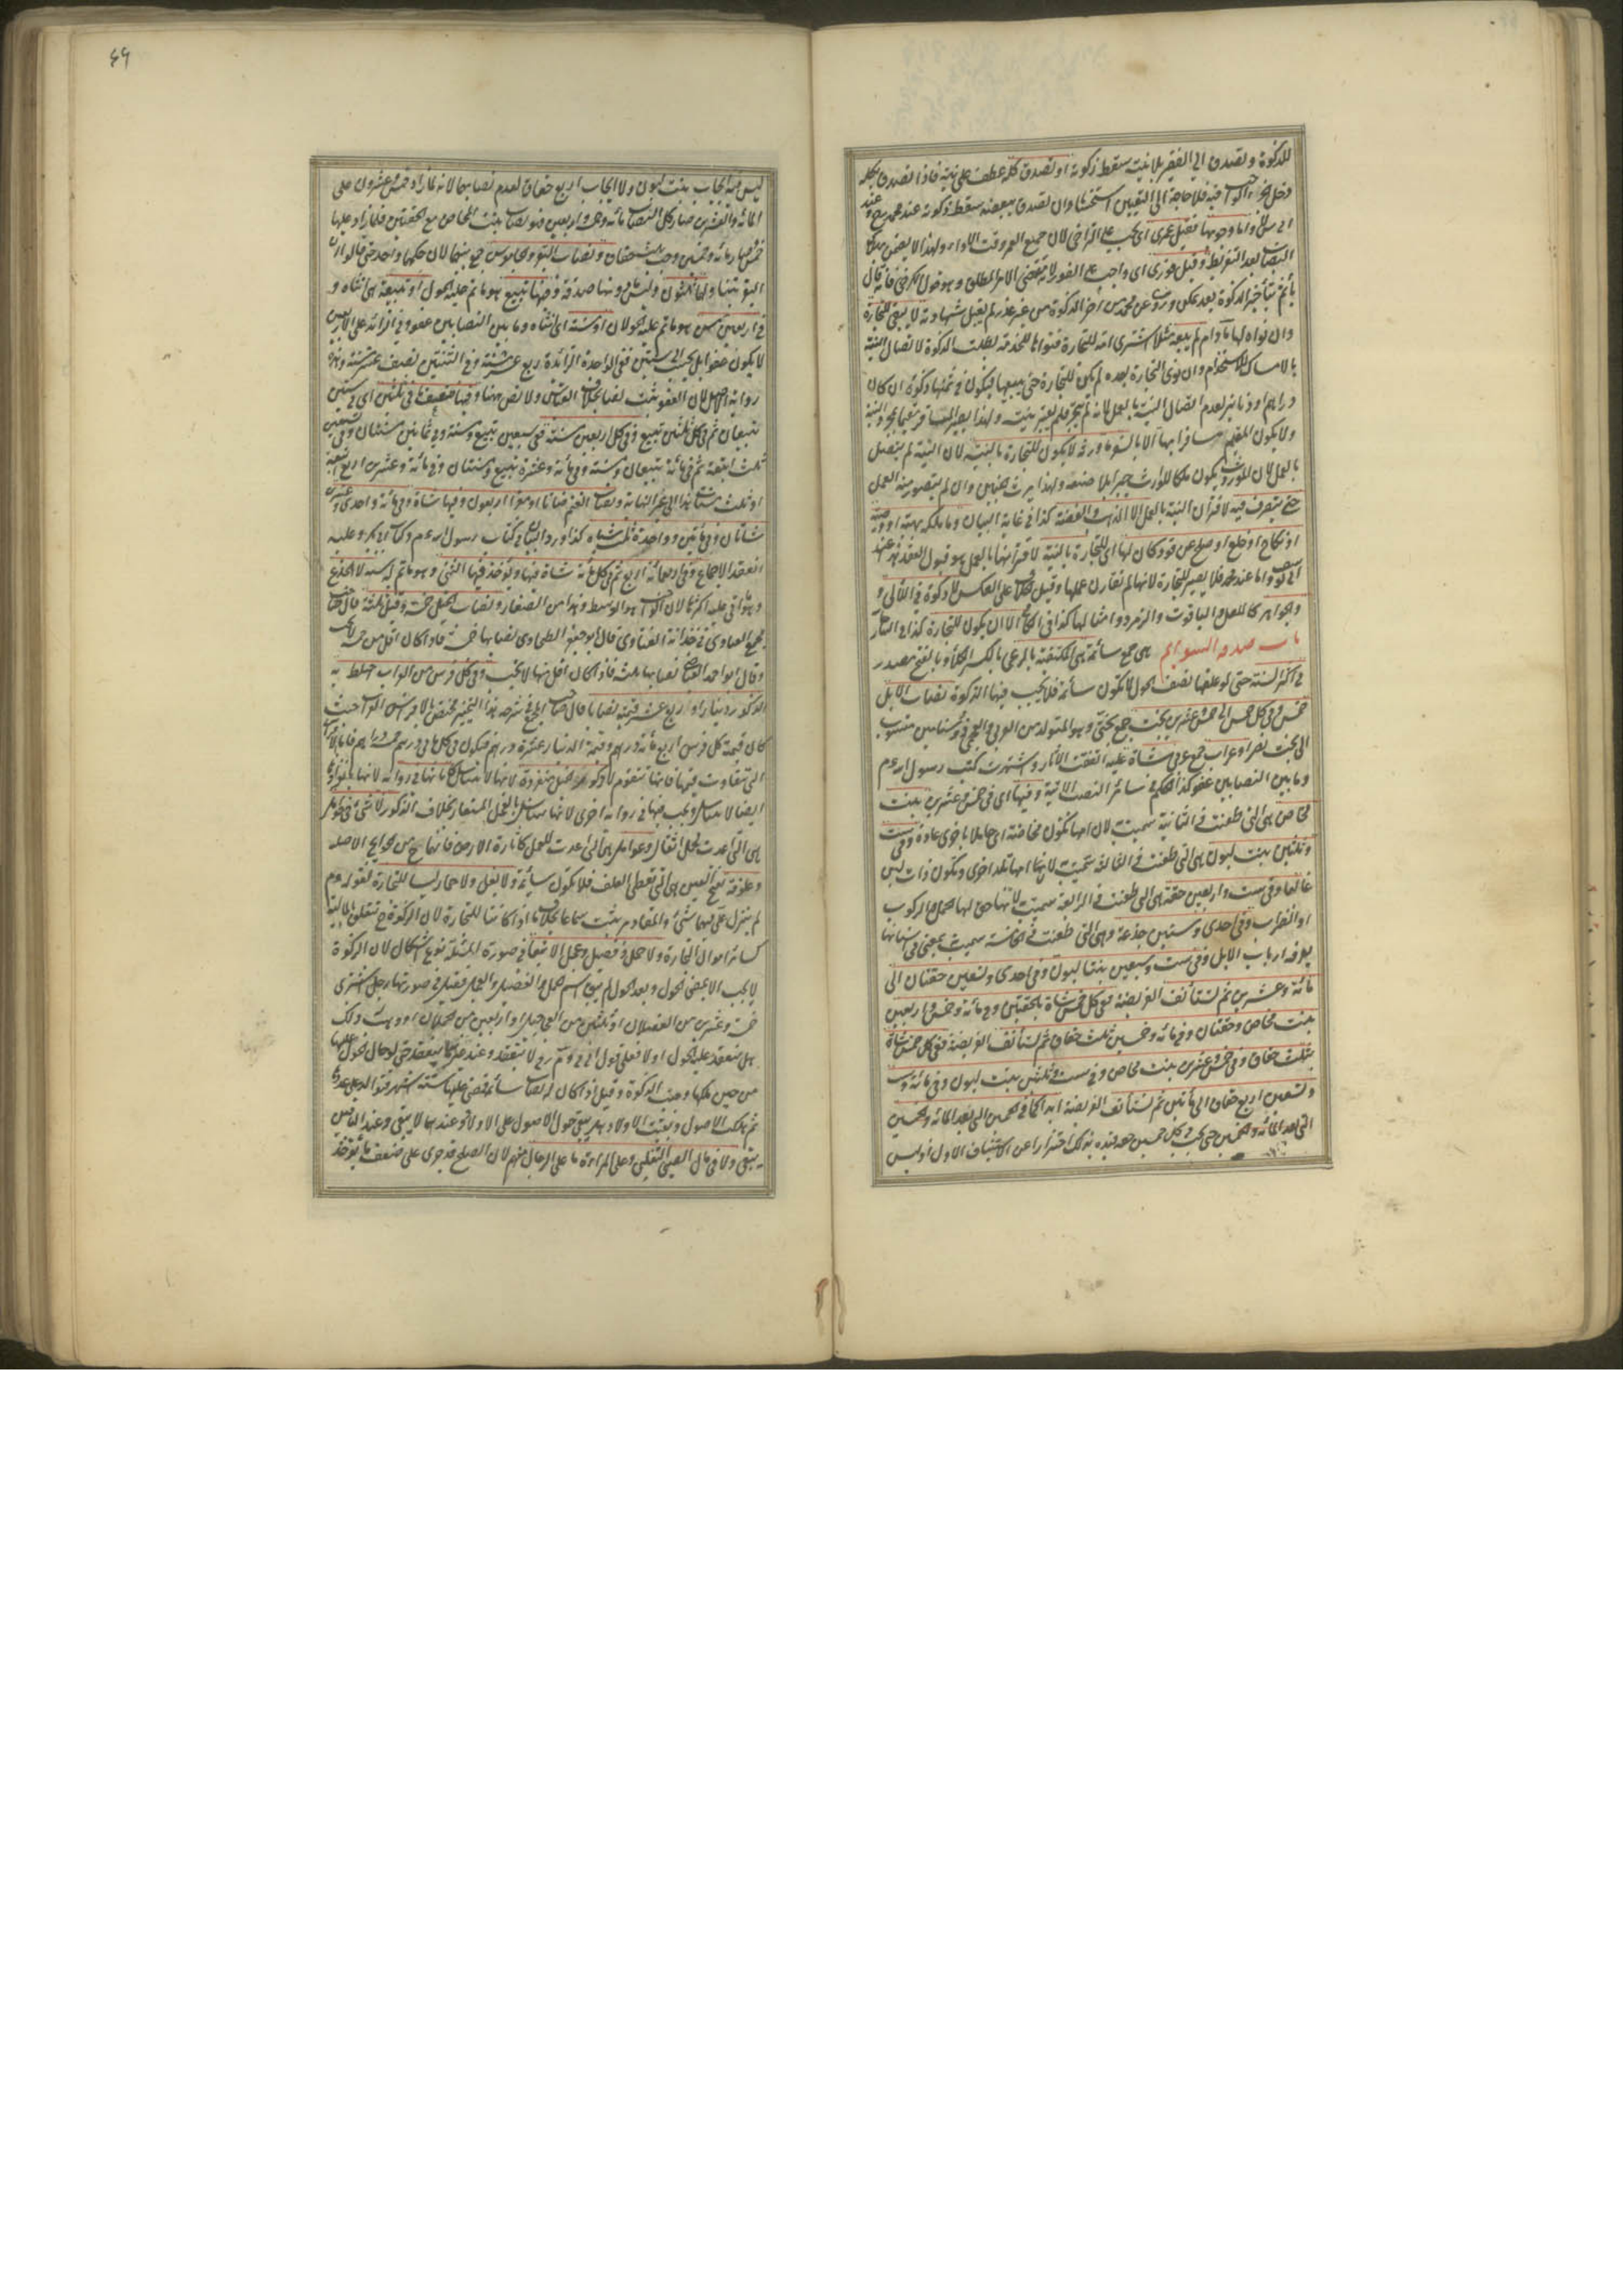 للزكوة وتصدق الى الفقير بلا نية سقط زكوته او تصدق كله عطف على نية فاذا تصدق بكله
دخل الجزء الواجب فيه فلا حاجة الى التعيين استحسانا وان تصدق ببعضه سقط زكوته عند محمد رح وعند
ابى يوسف لا واما وجوبها فقيل عمرى اى يجب على التراخى لان جميع العمر وقت الاداء ولهذا لا يضمن بهلاك
النصاب بعد التفريط وقيل فورى اى واجب على الفور لانه مقتضى الامر المطلق وهو قول الكرخى فانه قال
يأثم بتأخير الزكوة بعد التمكن وروى عن محمد من اخر الزكوة من غير عذر لم يقبل شهادته لا يبقى للتجارة
وان نواه لها ما دام لم يبعه مثلا اشترى امة للتجارة فنواها للخدمة بطلت الزكوة لاتصال النية
بالامساك للاستخدام وان نوى التجارة بعده لم يكن للتجارة حتى يبيعها فيكون فى ثمنها زكوة ان كان
دراهم او دنانير لعدم اتصال النية بالعمل لانه لم يتجر فلم يعتبر نيته ولهذا يصير المسافر مقيما بمجرد النية
ولا يكون المقيم مسافرا بها الا بالسفر وما ورثه لا يكون للتجارة بالنية لان النية لم يتصل
بالعمل لان الموروث يكون ملكا للوارث جبرا بلا صنعه ولهذا يرث الجنين وان لم يتصور منه العمل
حتى يتصرف فيه لاقتران النية بالعمل الا الذهب والفضة كذا فى غاية البيان وما ملكه بهبة او وصية
او نكاح او خلع او صلح عن قود كان لها اى للتجارة بالنية لاقترانها بالعمل هو قبول العقد هذا عند
ابى يوسف واما عند محمد فلا يصير للتجارة لانها لم تقارن عملها وقيل الخلاف على العكس لا زكوة فى اللآلى و
والجواهر كاللعل والياقوت والزمرد وامثالها كذا فى الكافى الا ان يكون للتجارة كذا فى التاتار
باب صدقة السوايم هى جمع سائمة هى المكتفية بالرعى بالكسر الكلأ وبالفتح مصدر
فى اكثر السنة حتى لو علفها نصف الحول لا تكون سائمة فلا يجب فيها الزكوة نصاب الابل
خمس وفى كل خمس الى خمس وعشرين بخت جمع بختى وهو المتولد من العربى والعجمى ذو سنامين منسوب
الى بخت نصر او عراب جمع عربى شاة عليه اتفقت الآثار واشتهرت كتب رسول الله عم
وما بين النصابين عفو كذا الحكم فى سائر النصب الآتية وفيها اى فى خمس وعشرين بنت
مخاض هى التى طعنت فى الثانية سميت لان امها تكون مخاضة اى حاملا باخرى عادة وفى ست
وثلثين بنت لبون هى التى طعنت فى الثالثة سميت لانها امها تلد اخرى وتكون ذات لبن
غالبا وفى ست واربعين حقة هى التى طعنت فى الرابعة سميت لانها حق لها الحمل والركوب
او الضراب وفى احدى وستين جذعة وهى التى طعنت فى الخامسة سميت بمعنى فى اسنانها
يعرفه ارباب الابل وفى ست وسبعين بنتا لبون وفى احدى وتسعين حقتان الى
مائة وعشرين ثم تستأنف الفريضة ففى كل خمس شاة بالحقتين وفى مائة وخمس واربعين
بنت مخاض وحقتان وفى مائة وخمسين ثلث حقاق ثم تستأنف الفريضة ففى كل خمس شاة
بثلث حقاق وفى خمس وعشرين بنت مخاض وفى ست وثلثين بنت لبون وفى مائة وست
وتسعين اربع حقاق الى مأتين ثم تستأنف الفريضة ابدا كما فى الخمسين التى بعد المائة والخمسين
التى بعد المائة والخمسين حتى يجب فى كل خمسين حقة قيده بذلك احترازا عن الاستيناف الاول اذ ليس
٤٦
ليس فيه ايجاب بنت لبون ولا ايجاب اربع حقاق لعدم نصابهما لانه لما زاد خمس وعشرون على
المائة والعشرين صار كل النصاب مائة وخمس واربعين فهو نصاب بنت المخاض مع الحقتين فلما زاد عليها
خمس صار مائة وخمسين وجب ثلث حقاق ونصاب البقر والجاموس جمع بينهما لان حكمهما واحد حتى قالوا ان
البقر يتناولهما ثلثون وليس فى دونها صدقة وفيها تبيع هو ما تم عليه الحول او تبيعة هى انثاه و
فى اربعين مسن هو ما تم عليه حولان او مسنة اى انثاه وما بين النصابين عفو وفى الزائد على الاربعين
لا يكون عفوا بل يحسب الى ستين ففى الواحدة الزائدة ربع عشر مسنة وفى الثنتين نصف عشر مسنة وهذه
رواية الاصل لان العفو ثبت نصا بخلاف القياس ولا نص ههنا وفيها ضعف ما فى ثلثين اى فى ستين
تبيعان ثم فى كل ثلثين تبيع وفى كل اربعين مسنة ففى سبعين تبيع ومسنة وفى ثمانين مسنتان وفى تسعين
ثلث اتبعة ثم فى مائة تبيعان ومسنة وفى مائة وعشرة تبيع ومسنتان وفى مائة وعشرين اربع اتبعة
او ثلث مسنات هكذا الى غير النهاية ونصاب الغنم ضانا او معزا اربعون وفيها شاة وفى مائة واحدى وعشرين
شاتان وفى مأتين وواحدة ثلث شياه كذا ورد البيان فى كتاب رسول الله عم وكتاب ابى بكر وعليه
انعقد الاجماع وفى اربعمائة اربع ثم فى كل مائة شاة فيها ويؤخذ فيها الثنى وهو ما تم له سنة لا الجذع
وهو ما اتى عليه اكثرها لان الواجب هو الوسط وهذا من الصغار ونصاب الخيل خمسة وقيل ثلثة قال صاحب
مجمع الفتاوى فى خزانة الفتاوى قال ابو جعفر الطحاوى نصابها خمسة فاذا كان اقل من خمسة لا يجب
وقال ابو احمد العياضى نصابها ثلثة فاذا كان اقل منها لا يجب وفى كل فرس من الذى اختلط به
الذكور دينار او ربع عشر قيمته نصابا قال صاحب المجمع فى شرحه هذا التخيير مختص بالافراس العراب حيث
كان قيمة كل فرس اربع مائة درهم وقيمة الدينار عشرة دراهم فيكون فى كل مائتى درهم خمسة دراهم فاما الافراس
التى تتفاوت قيمها فانها تتقوم لا ذكور الخيل منفردة لانها لا تتناسل كانها فى رواية لانها بانفرادها
ايضا لا تتناسل ويجب فيها فى رواية اخرى لانها تتناسل بالفحل المستعار بخلاف الذكور لا شئ فى حوامل
هى التى اعدت لحمل اثقال وعوامل هى التى اعدت للعمل كاثارة الارض فانها ح من الحوايج الاصلية
وعلوفة بفتح العين هى التى تعطى العلف فلا تكون سائمة ولا بغل ولا حمار ليسا للتجارة لقوله عم
لم ينزل على فيهما شئ والمقادير يثبت سماعا بخلاف ما اذا كانتا للتجارة لان الزكوة ح تتعلق بالمالية
كسائر اموال التجارة ولا حمل وفصيل وعجل الا تبعا فى صورة المسئلة نوع اشكال لان الزكوة
لا يجب الا بمضى الحول وبعد الحول لم يبق اسم الحمل والفصيل والعجل فقيل فى صورتها رجل اشترى
خمسة وعشرين من الفصلان او ثلثين من العجاجيل او اربعين من الحملان او وهب له ذلك
هل ينعقد عليه الحول او لا فعلى قول ابى ح و م رح لا ينعقد وعند غيرهما ينعقد حتى لو حال الحول عليها
من حين ملكها وجبت الزكوة وقيل اذا كان له نصاب سائمة فمضى عليها ستة اشهر فتوالدت مثل عددها
ثم هلكت الاصول وبقيت الاولاد هل يبقى حول الاصول على الاولاد فعندهما لا يبقى وعند الباقين
يبقى ولا فى مال الصبى التغلبى وعلى المراءة ما على الرجال منهم لان الصلح قد جرى على ضعف ما يؤخذ